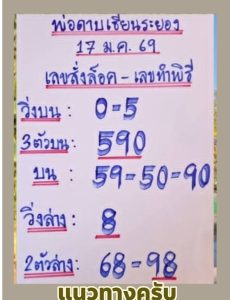 พ่อดาบเซียนระยอง
17 ม.ค. 69
เลขสั่งล็อค - เลขทำพิธี
วิ่งบน : 0-5
3ตัวบน : 590
บน : 59-50-90
วิ่งล่าง : 8
2ตัวล่าง : 68-98
แนวทางครับ